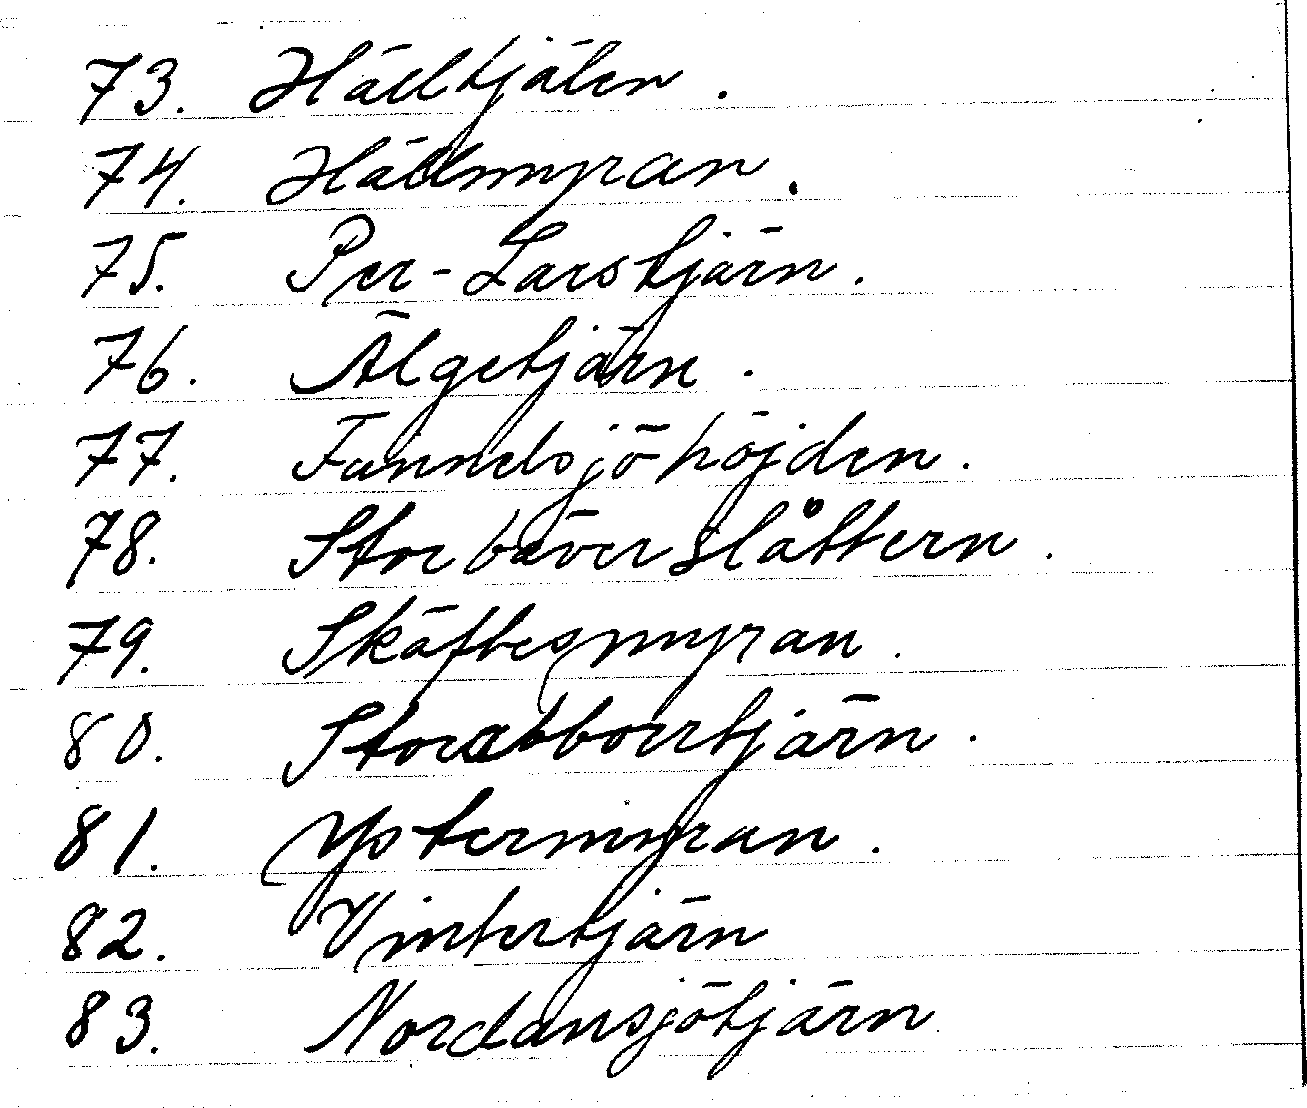 73. Hälltjälen.
74. Hällmyran.
75. Per-Larstjärn.
76. Älgetjärn.
77. Funnelsjöhöjden.
78. Storbäverslåttern.
79. Skäftesmyran.
80. Storabborrtjärn.
81. Ystermyran.
82. Vintertjärn
83. Nordansjötjärn